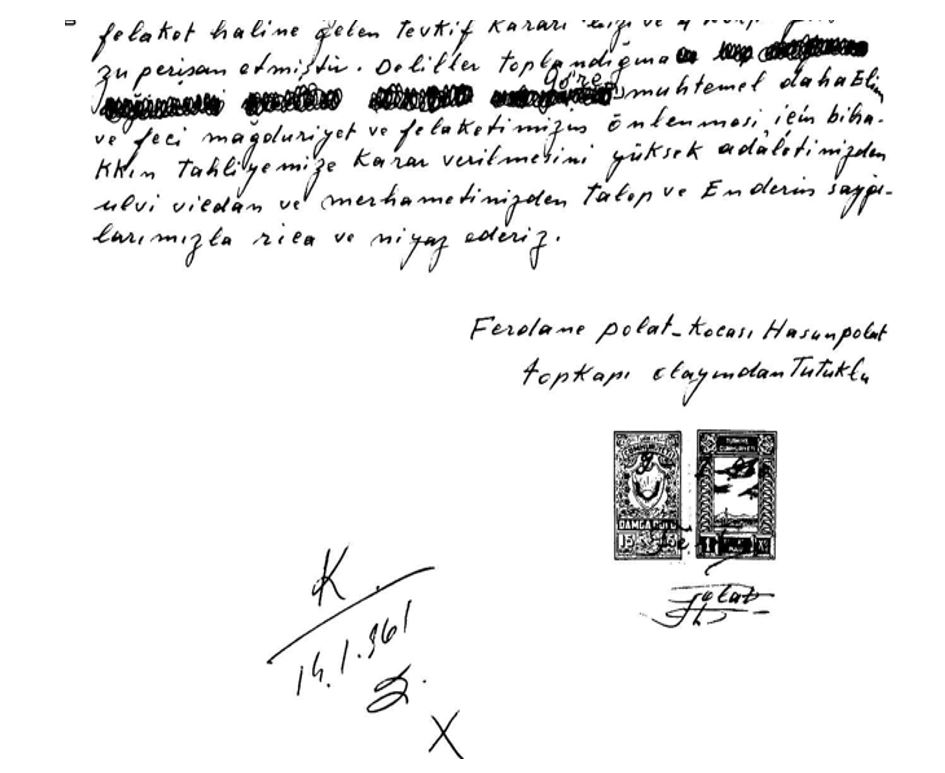 felaket haline gelen Tevkif Kararı bizi ve
zu perişan etmiştir. Deliller toplandığına
göre
muhtemel daha Elim
ve feci mağduriyet ve felaketimizin önlenmesi için biha-
kkın Tahliyemize Karar verilmesini yüksek adâletinizden
ulvi vicdan ve merhametinizden Talep ve Enderin saygı-
larımızla rica ve niyaz ederiz.
Ferdane polat-Kocası Hasanpolat
Topkapı olayından Tutuklu
DAMGA PULU
15
K.
14.1.961
X